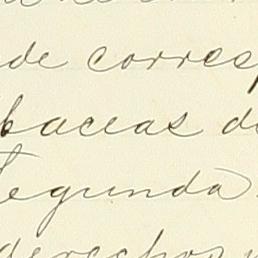 de corres
baceas de
Segunda
derechos